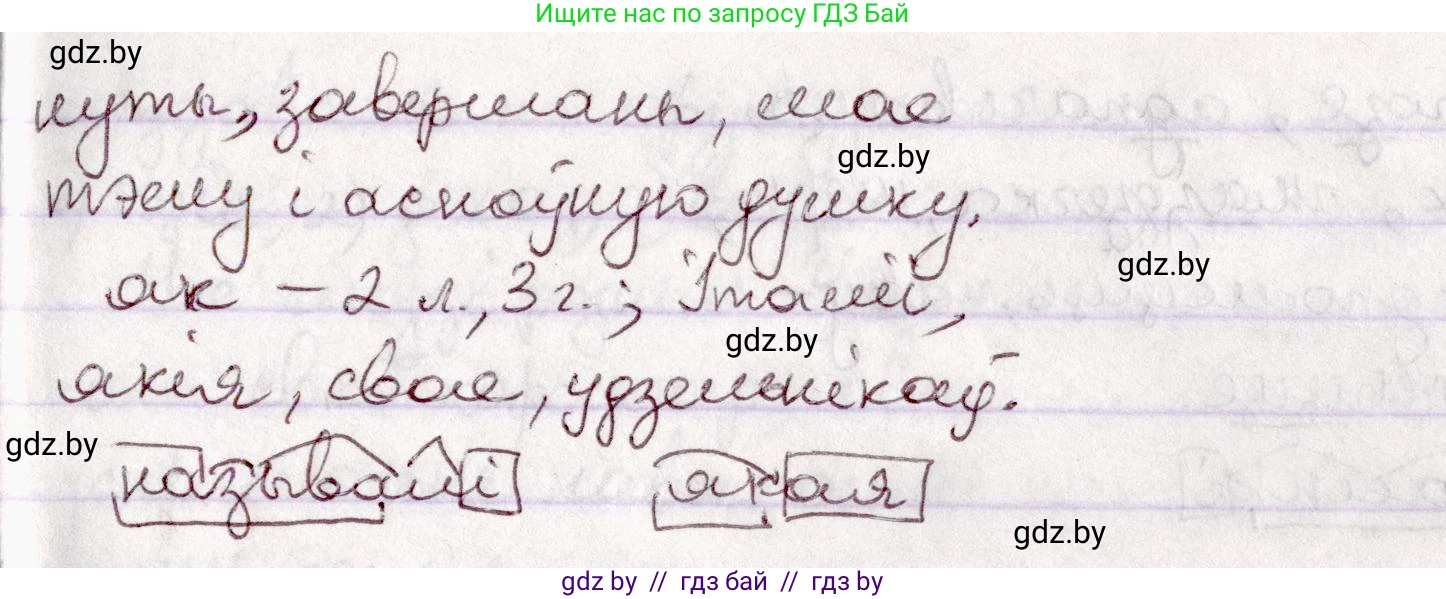 Ищите нас по запросу ГДЗ Бай
gdz.by
нуты, завершаны, мае
gdz.by
тэму і асноўную думку.
gdz.by
як – 2 л., 3 г.; Італіі,
gdz.by
якія, свае, удзельнікаў.
gdz.by
называлі якая
gdz.by
gdz by // гдз бай // гдз by